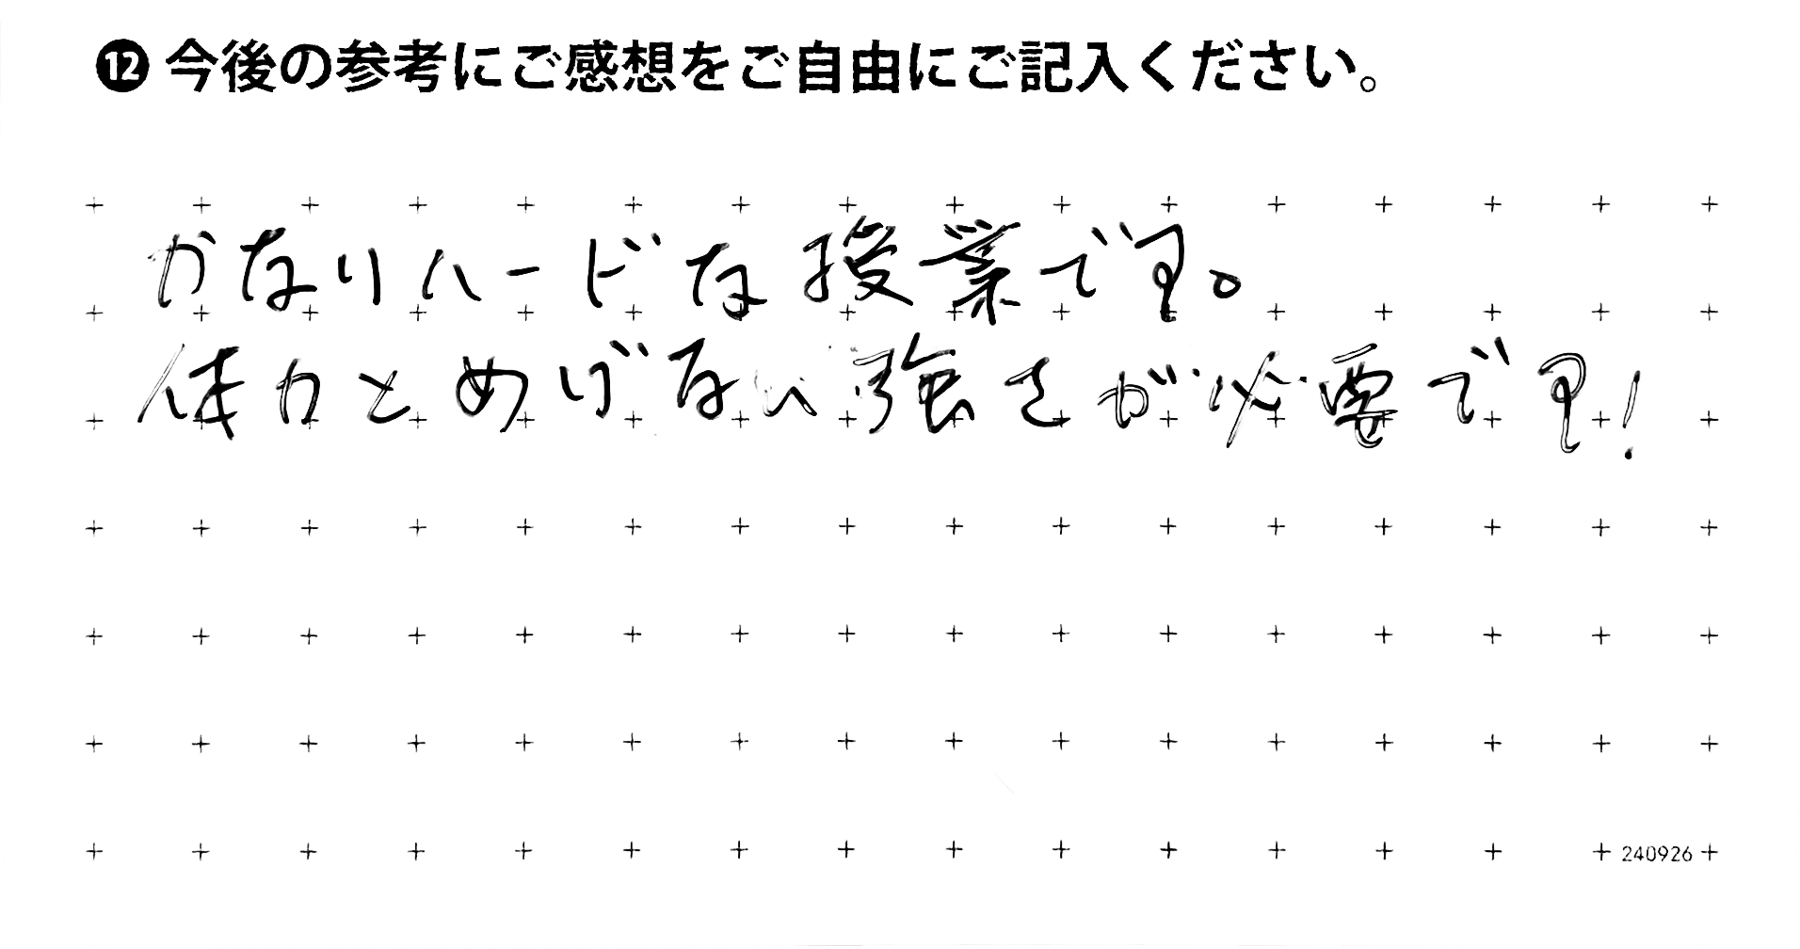 ⓬今後の参考にご感想をご自由にご記入ください。
かなりハードな授業です。
体力とめげない強さが必要です!
240926